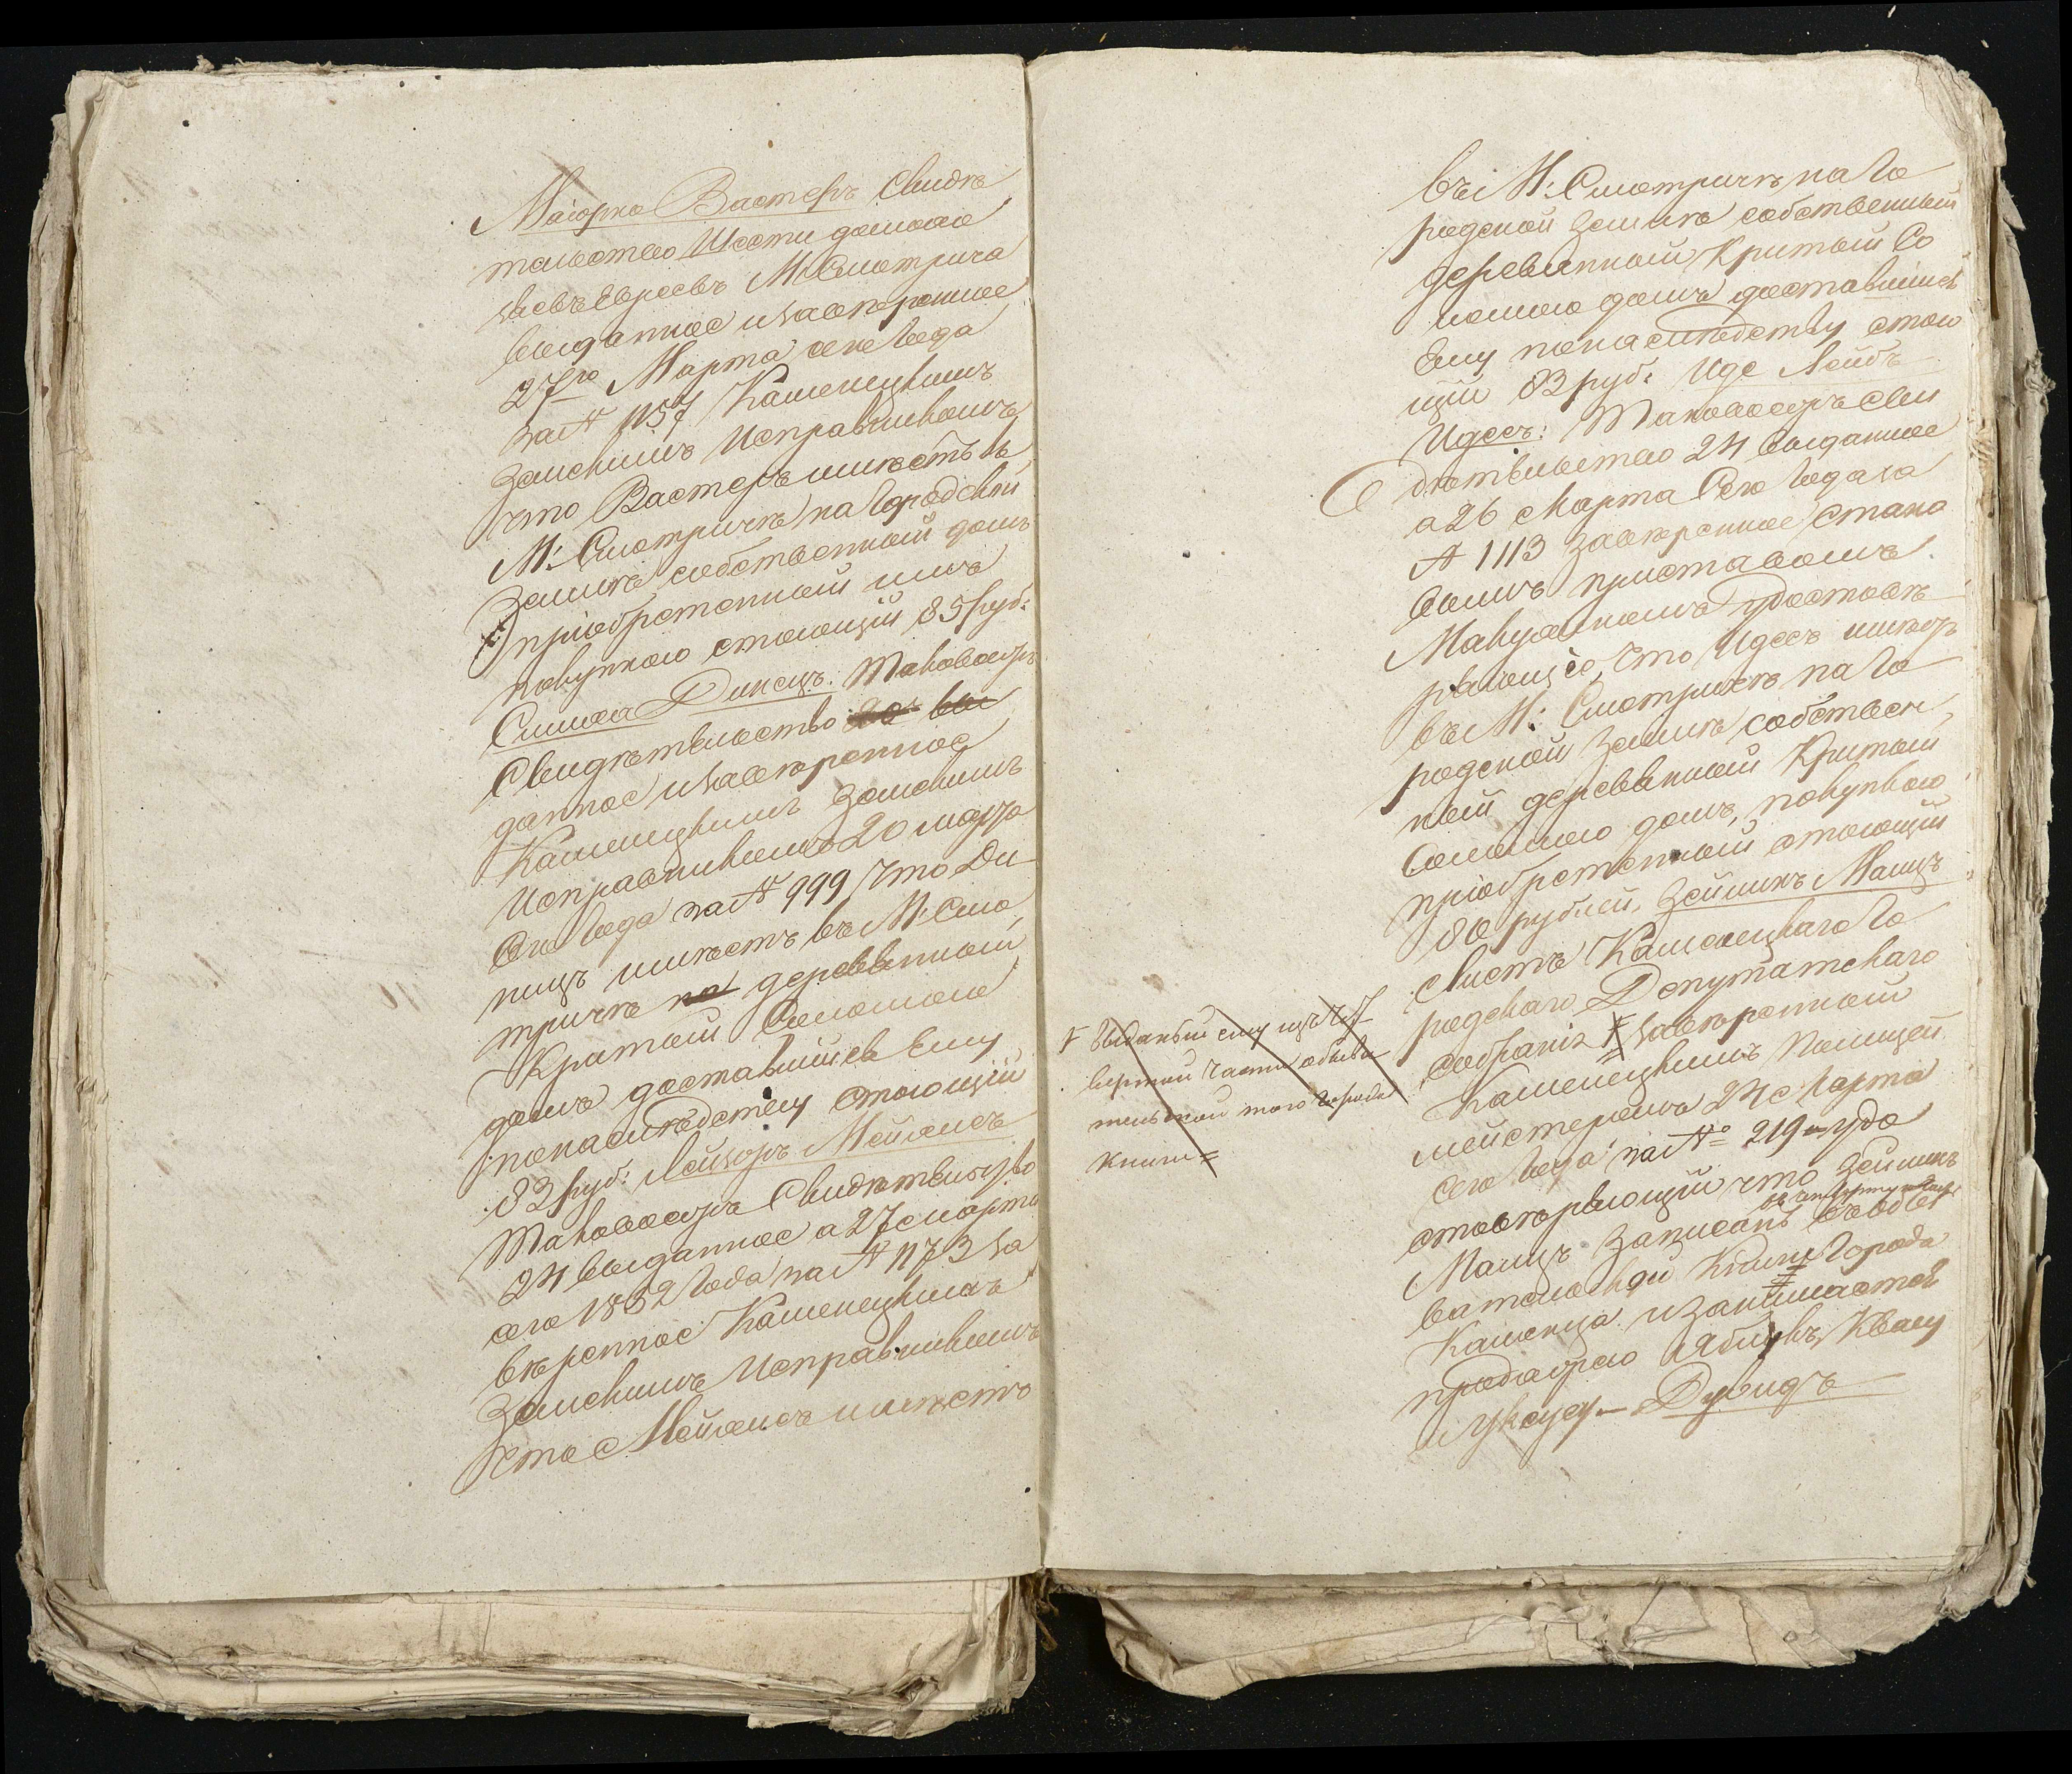 Маiорко Вастеръ Свидѣ
тельство Шести домохо
зяевъ Евреевъ М: Смотрича
выданное и завѣренное
27го Марта сего года
за № 1157 Каменецкимъ
Земскимъ Исправникомъ
что Вастеръ имѣетъ въ
М: Смотричѣ на городской
Землѣ собственный домъ
приобретенный имъ
покупкою стоющiй 85 руб:
Симха Динецъ. Таковоежъ
Свидѣтельство вы
данное и завѣренное
Каменецкимъ Земскимъ
Исправникомъ 20 марта
Сего года за № 999 что Ди
нецъ имѣетъ въ М: Смо
тричѣ на деревянный
Крытый Соломою
домъ доставшiйся Ему
по наслѣдству стоющiй
82 руб: Лейзоръ Мейлисъ
Таковоежъ Свидѣтельство
24 выданное а 27 марта
сего 1852 года за № 1173 за
вѣренное Каменецкимъ
Земскимъ Исправникомъ
что Мейлисъ имѣетъ
въ М: Смотричѣ на Го
родской Землѣ собственный
деревянный Крытый Со
ломою домъ доставшiйся
Ему по наслѣдству стою
щiй 83 руб: Иде Лейбъ
Идесъ: Таковоежъ Сви
дѣтельство 24 выданное
а 26 Марта Сего года за
№ 1113 Завѣренное Стано
вымъ приставомъ
удостовѣ
ряющее, что Идесъ имѣетъ
въ М: Смотричѣ на Го
родской Землѣ собствен
ный деревянный Крытый
Соломою домъ, покупкою
приобретенный стоющiй
86 рублей, Зейликъ Малцъ
Листъ Каменецкаго Го
родскаго Депутатскаго
собранiя завѣренный
Каменецкимъ Полицей
мейстеромъ 24 Марта
сего года за № 219 удо
стовѣряющiй что Зейликъ
въ четвертую часть
Малцъ Записанъ въ обы
вательской Книги Города
Каменца и занимается
продажею яблукъ, Квасу
и уксусу — Дувидъ
+ Выданный ему изъ чет
вертой части обыва
тельской того города
книги =